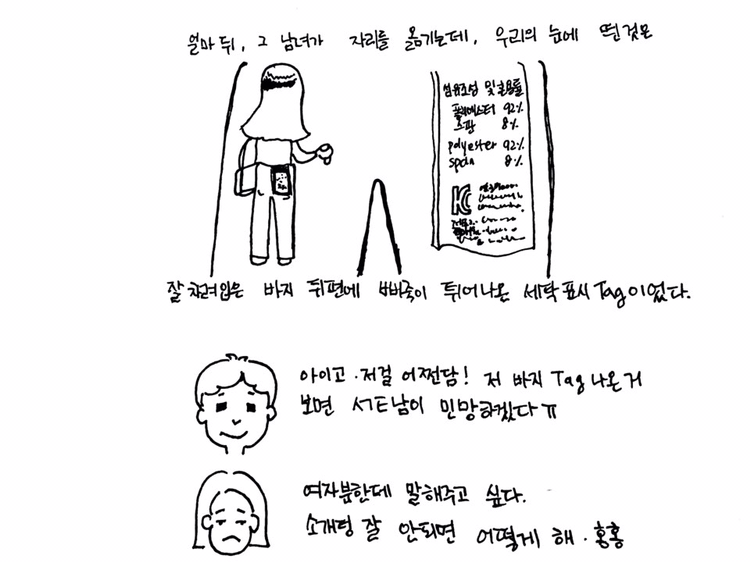 얼마 뒤, 그 남녀가 자리를 옮기는데, 우리의 눈에 띈것은
섬유조성 및 혼용률
폴리에스터 92%
스판 8%
polyester 92%
spdn 8%
KC
잘 차려입은 바지 뒤편에 삐쭉이 튀어나온 세탁표시 Tag이었다.
아이고. 저걸 어쩐담! 저 바지 Tag 나온거
보면 소개팅남이 민망하겠다ㅠ
여자분한테 말해주고 싶다.
소개팅 잘 안되면 어떻게 해. 홍홍